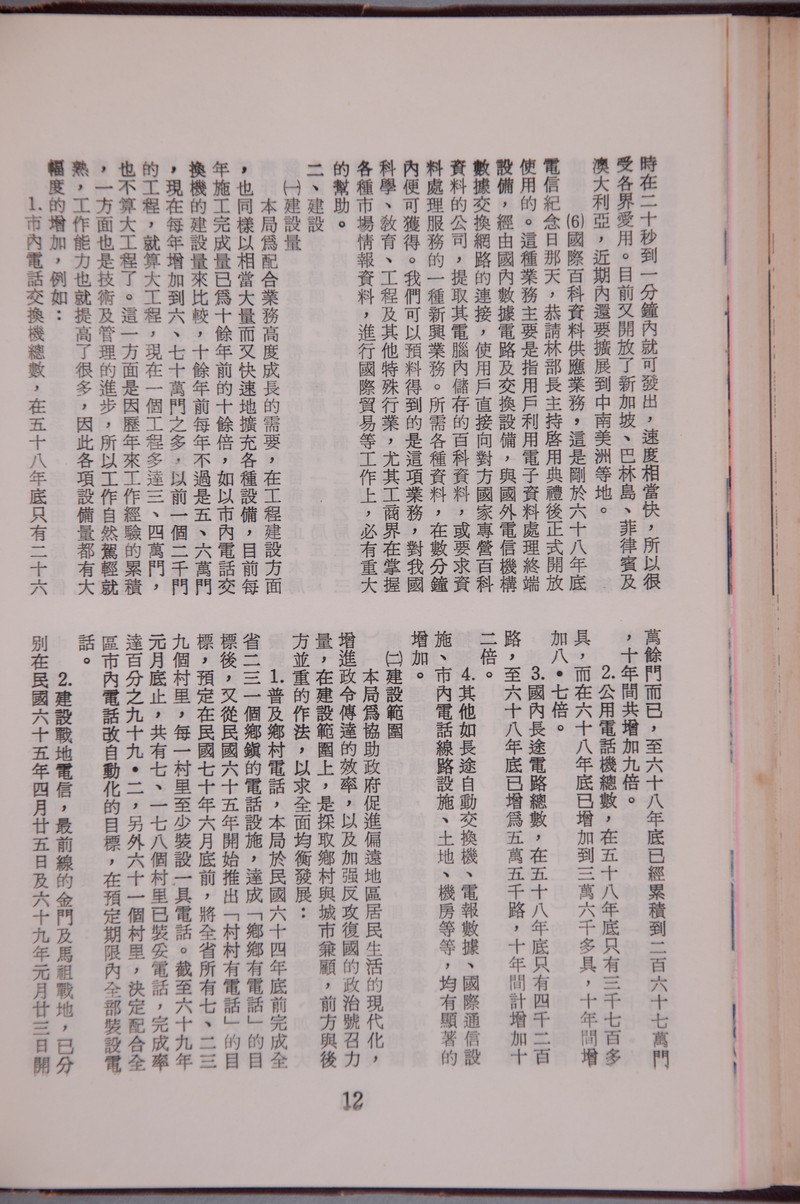 時在二十秒到一分鐘內就可發出，速度相當快，所以很
受各界愛用。目前又開放了新加坡、巴林島、菲律賓及
澳大利亞，近期內還要擴展到中南美洲等地。
⑹國際百科資料供應業務，這是剛於六十八年底
電信紀念日那天，恭請林部長主持啓用典禮後正式開放
使用的。這種業務主要是指用戶利用電子資料處理終端
設備，經由國內數據電路及交換設備，與國外電信機構
數據交換網路的連接，使用戶直接向對方國家專營百科
資料的公司，提取其電腦內儲存的百科資料，或要求資
料處理服務的一種新興業務。所需各種資料，在數分鐘
內便可獲得。我們可以預料得到的是這項業務，對我國
科學、敎育、工程及其他特殊行業，尤其工商界在掌握
各種市場情報資料，進行國際貿易等工作上，必有重大
的幫助。
二、建設
㈠建設量
本局爲配合業務高度成長的需要，在工程建設方面
，也同樣以相當大量而又快速地擴充各種設備，目前每
年施工完成量已爲十餘年前的十餘倍，如以市內電話交
換機的建設量來比較，十餘年前每年不過是五、六萬門
，現在每年增加到六、七十萬門之多，以前一個二千門
的工程，就算大工程，現在一個工程多達三、四萬門，
也不算大工程了。這一方面是因歷年來工作經驗的累積
，一方面也是技術及管理的進步，所以工作自然駕輕就
熟，工作能力也就提高了很多，因此各項設備量都有大
幅度的增加，例如：
1.市內電話交換機總數，在五十八年底只有二十六
萬餘門而已，至六十八年底已經累積到二百六十七萬門
，十年間共增加九倍。
2.公用電話機總數，在五十八年底只有三千七百多
具，而在六十八年底已增加到三萬六千多具，十年間增
加八•七倍。
3.國內長途電路總數，在五十八年底只有四千二百
路，至六十八年底已增爲五萬五千路，十年間計增加十
二倍。
4.其他如長途自動交換機、電報數據、國際通信設
施、市內電話線路設施、土地、機房等等，均有顯著的
增加。
㈡建設範圍
本局爲協助政府促進偏遠地區居民生活的現代化，
增進政令傳達的效率，以及加强反攻復國的政治號召力
量，在建設範圍上，是採取鄉村與城市兼顧，前方與後
方並重的作法，以求全面均衡發展：
1.普及鄉村電話，本局於民國六十四年底前完成全
省二三一個鄉鎭的電話設施，達成「鄉鄉有電話」的目
標後，又從民國六十五年開始推出「村村有電話」的目
標，預定在民國七十年六月底前，將全省所有七、二三
九個村里，每一村里至少裝設一具電話。截至六十九年
元月底止，共有七、一七八個村里已裝妥電話，完成率
達百分之九十九•二，另外六十一個村里，決定配合全
區市內電話改自動化的目標，在預定期限內全部裝設電
話。
2.建設戰地電信，最前線的金門及馬祖戰地，已分
別在民國六十五年四月廿五日及六十九年元月廿三日開
12